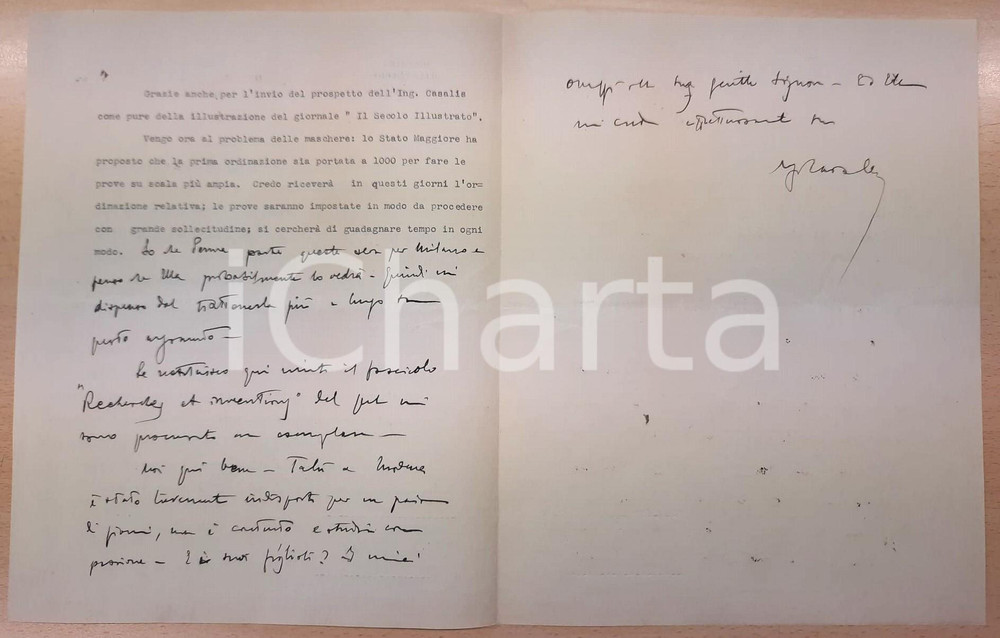 Grazie anche per l'invio del prospetto dell'Ing. Casalis
come pure della illustrazione del giornale " Il Secolo Illustrato".
Vengo ora al problema delle maschere: lo Stato Maggiore ha
proposto che la prima ordinazione sia portata a 1000 per fare le
prove su scala più ampia. Credo riceverà in questi giorni l'or=
dinazione relativa; le prove saranno impostate in modo da procedere
con grande sollecitudine; si cercherà di guadagnare tempo in ogni
modo. parte questa sera per Milano e
penso che Ella probabilmente lo vedrà - Quindi mi
dispenso dal trattenerla più a lungo su
questo argomento -
Le restituisco qui unito il fascicolo
"Recherches et inventions" del quale mi
sono procurato un esemplare -
Noi qui bene - a Modena
è stato lievemente indisposto per un paio
di giorni, ma è contento e studia con
passione - E i suoi figlioli? I miei
omaggi alla sua gentile Signora - Ed Ella
mi creda affettuosamente suo
iCharta